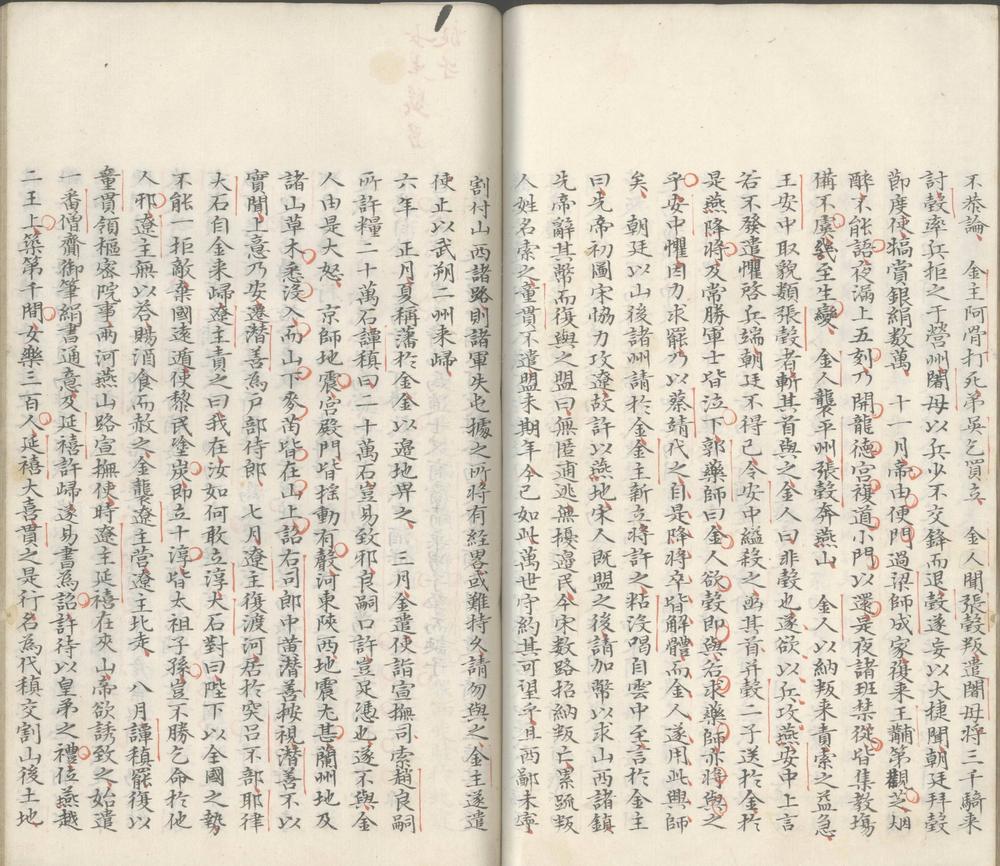 不恭論　金主阿骨打死弟吳乞買立　金人聞張瑴叛遣闍母將三千騎來
討瑴率兵拒之于營州闍母以兵少不交鋒而退瑴遂妄以大捷聞朝廷拜瑴
節度使犒賞銀絹數萬　十一月帝由便門過梁師成家復來王黼第觀芝烟
醉不能語夜漏上五刻乃開龍德宮複道小門以還是夜諸班禁從皆集教塲
備不虞幾至生變　金人襲平州張瑴奔燕山　金人以納叛來責索之益急
王安中取貌類張瑴者斬其首與之金人曰非瑴也遂欲以兵攻燕安中上言
若不發遣懼啓兵端朝廷不得已令安中縊殺之函其首并瑴二子送於金於
是燕降將及常勝軍士皆泣下郭藥師曰金人欲瑴即與若求藥師亦將與之
乎安中懼因力求罷乃以蔡靖代之自是降將卒皆解體而金人遂用此興師
矣　朝廷以山後諸州請於金金主新立將許之粘沒喝自雲中至言於金主
曰先帝初圖宋恊力攻遼故許以燕地宋人既盟之後請加幣以求山西諸鎮
先帝辭其幣而復與之盟曰無匿逋逃無擾邊民今宋數路招納叛亡累疏叛
人姓名索之童貫不遣盟未期年今已如此萬世守約其可望乎且西鄙未寧
割付山西諸路則諸軍失屯據之所將有經畧或難持久請勿與之金主遂遣
使止以武朔二州來歸
六年　正月夏稱藩於金金以邊地畀之　三月金遣使詣宣撫司索趙良嗣
所許糧二十萬石譚稹曰二十萬石豈易致邪良嗣口許豈足憑也遂不與金
人由是大怒　京師地震宮殿門皆搖動有聲河東陝西地震尤甚蘭州地及
諸山草木悉沒入而山下麥苗皆在山上詔右司郎中黃潛善按視潛善不以
實聞上意乃安遷潛善為户部侍郎　七月遼主復渡河居於突呂不部耶律
大石自金來歸遼主責之曰我在汝如何敢立淳大石對曰陛下以全國之勢
不能一拒敵棄國遠遁使黎民塗炭即立十淳皆太祖子孫豈不勝乞命於他
人邪遼主無以答賜酒食而赦之金襲遼主營遼王北走　八月譚稹罷復以
童貫領樞密院事兩河燕山路宣撫使時遼主延禧在夾山帝欲誘致之始遣
一番僧齎御筆絹書通意及延禧許歸遂易書為詔許待以皇弟之禮位燕越
二王上築第千間女樂三百人延禧大喜貫之是行名為代稹交割山後土地